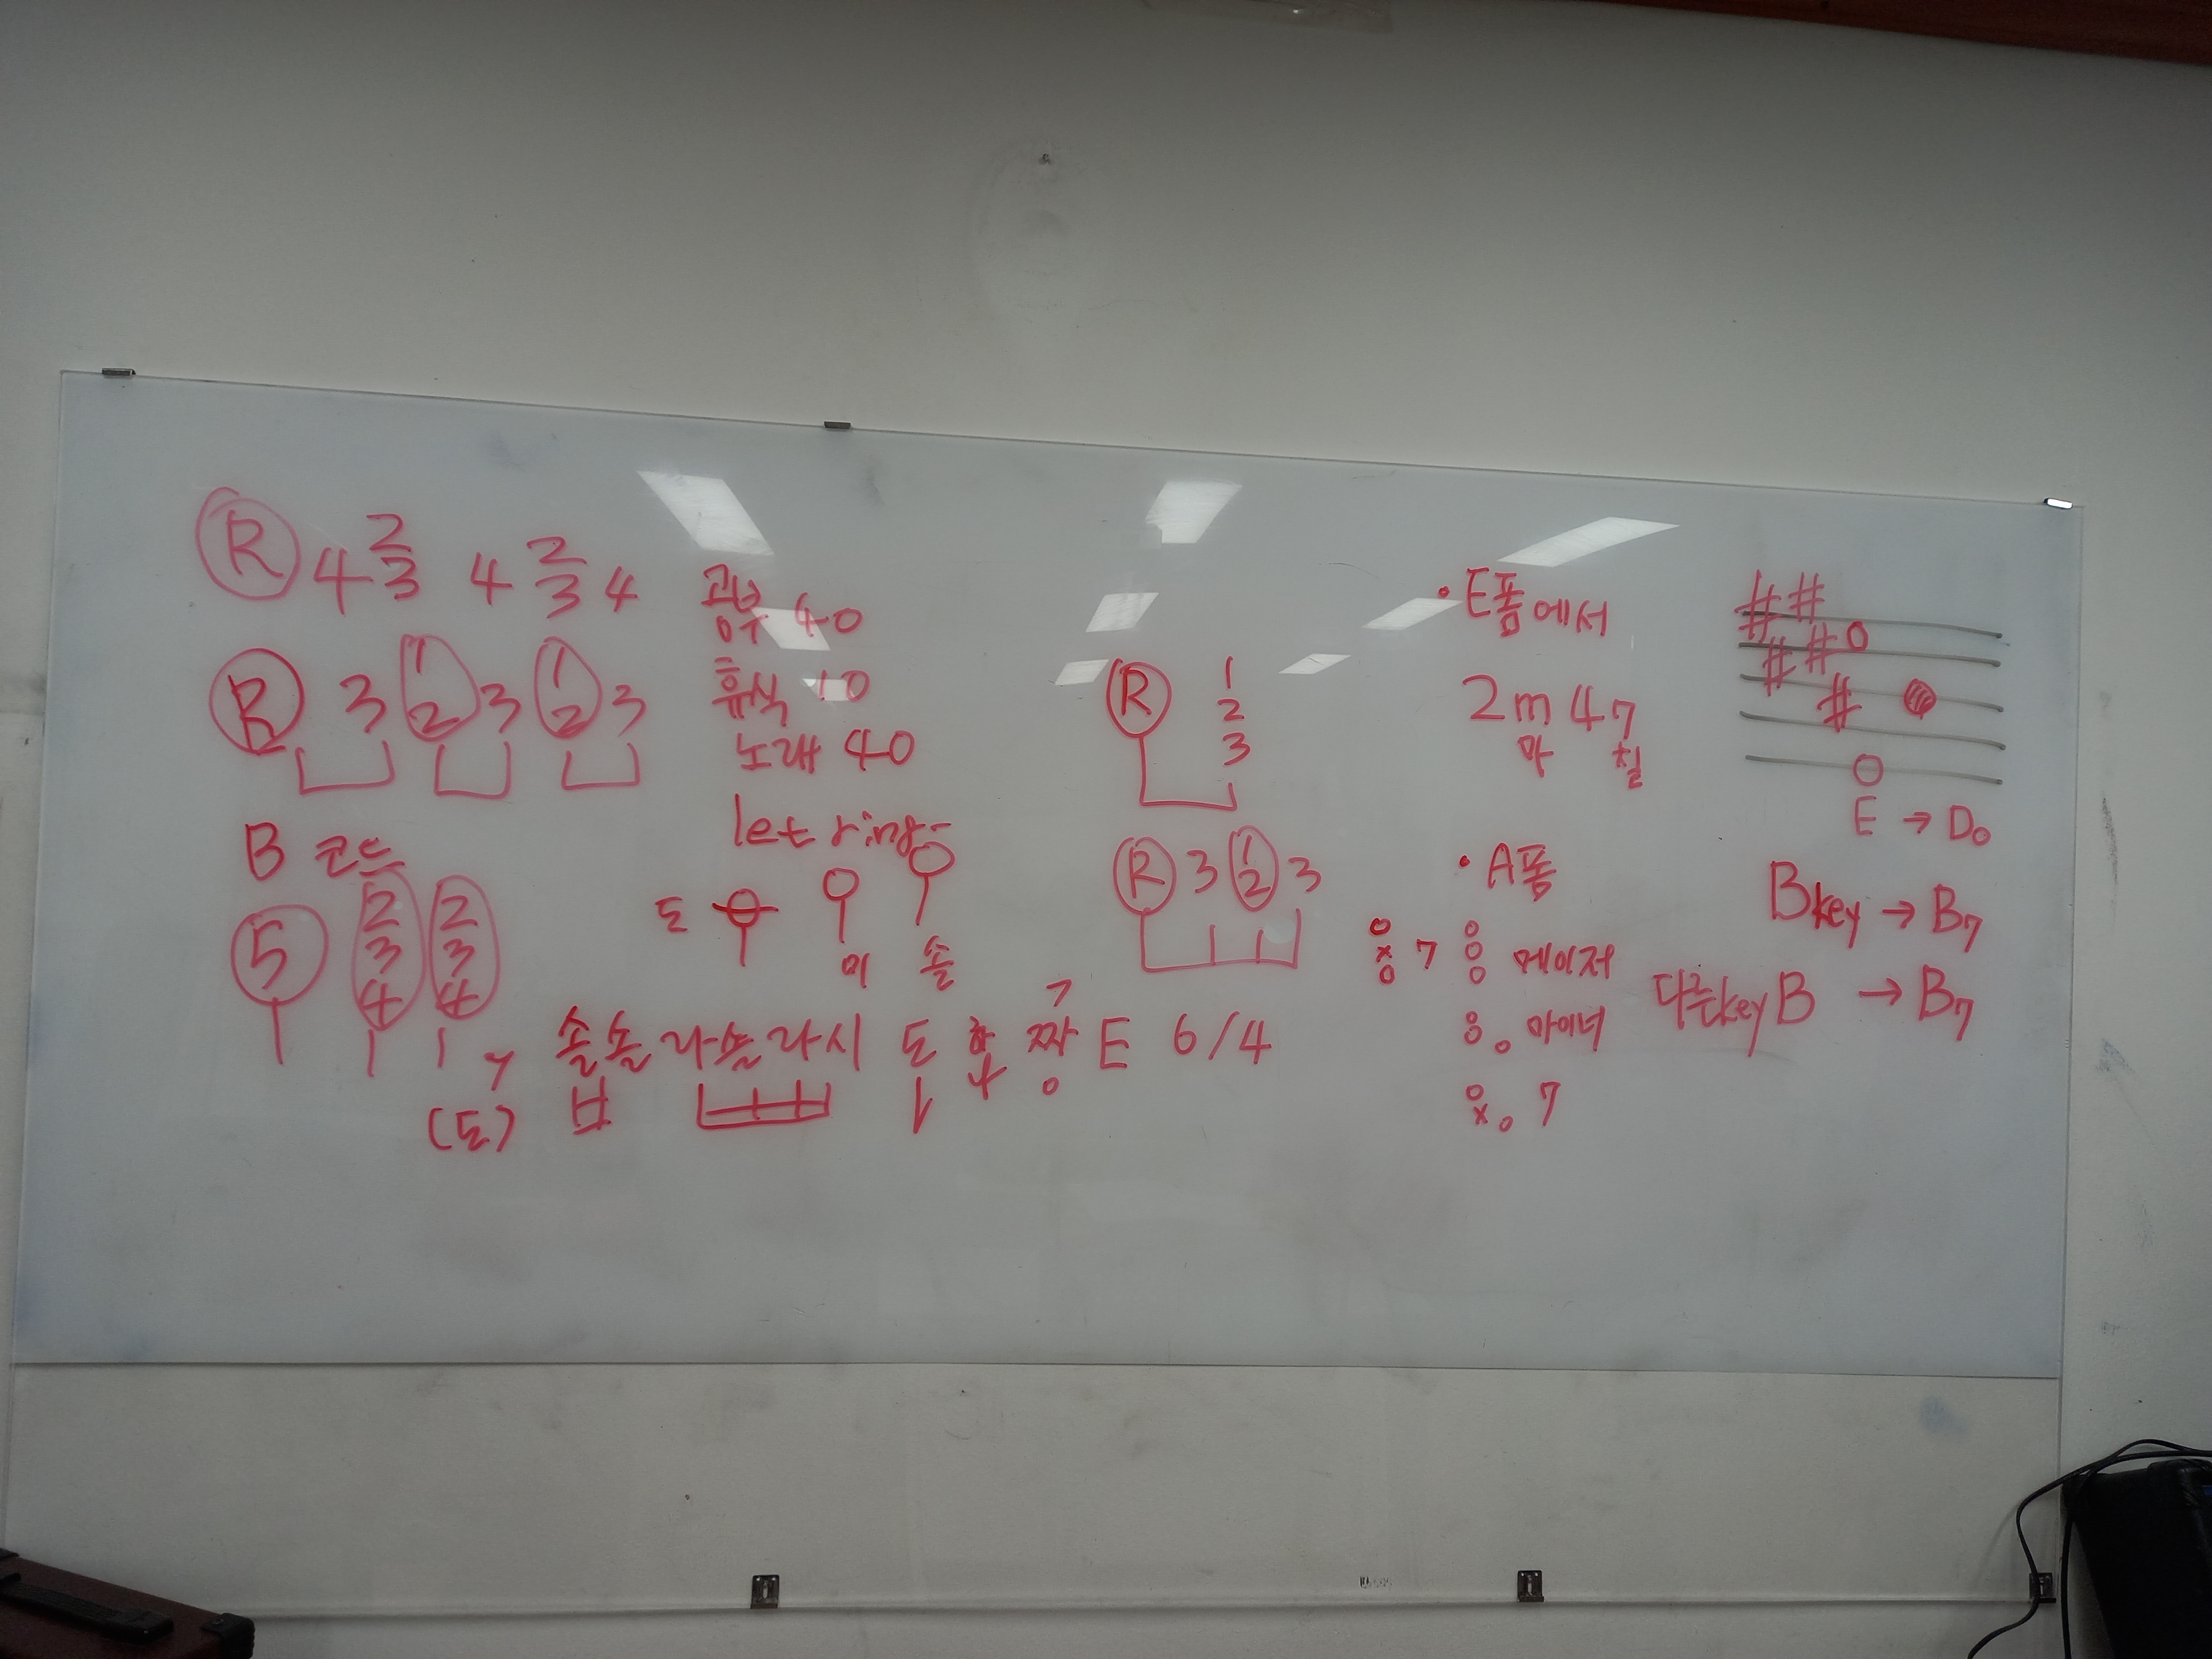 R 4 2/3 4 2/3 4
R 3 1 2 3 1 2 3
B 코드
5 2 3 4 2 3 4
공부 40
휴식 10
노래 40
let ring-
도 미 솔
솔솔라솔라시 도 짱 E 6/4
(도)
R 1 2 3
R 3 1 2 3
• E폼에서
2m 47
마 칠
• A폼
7 메이저
마이너
7
######
E → Do
Bkey → B7
다른key B → B7